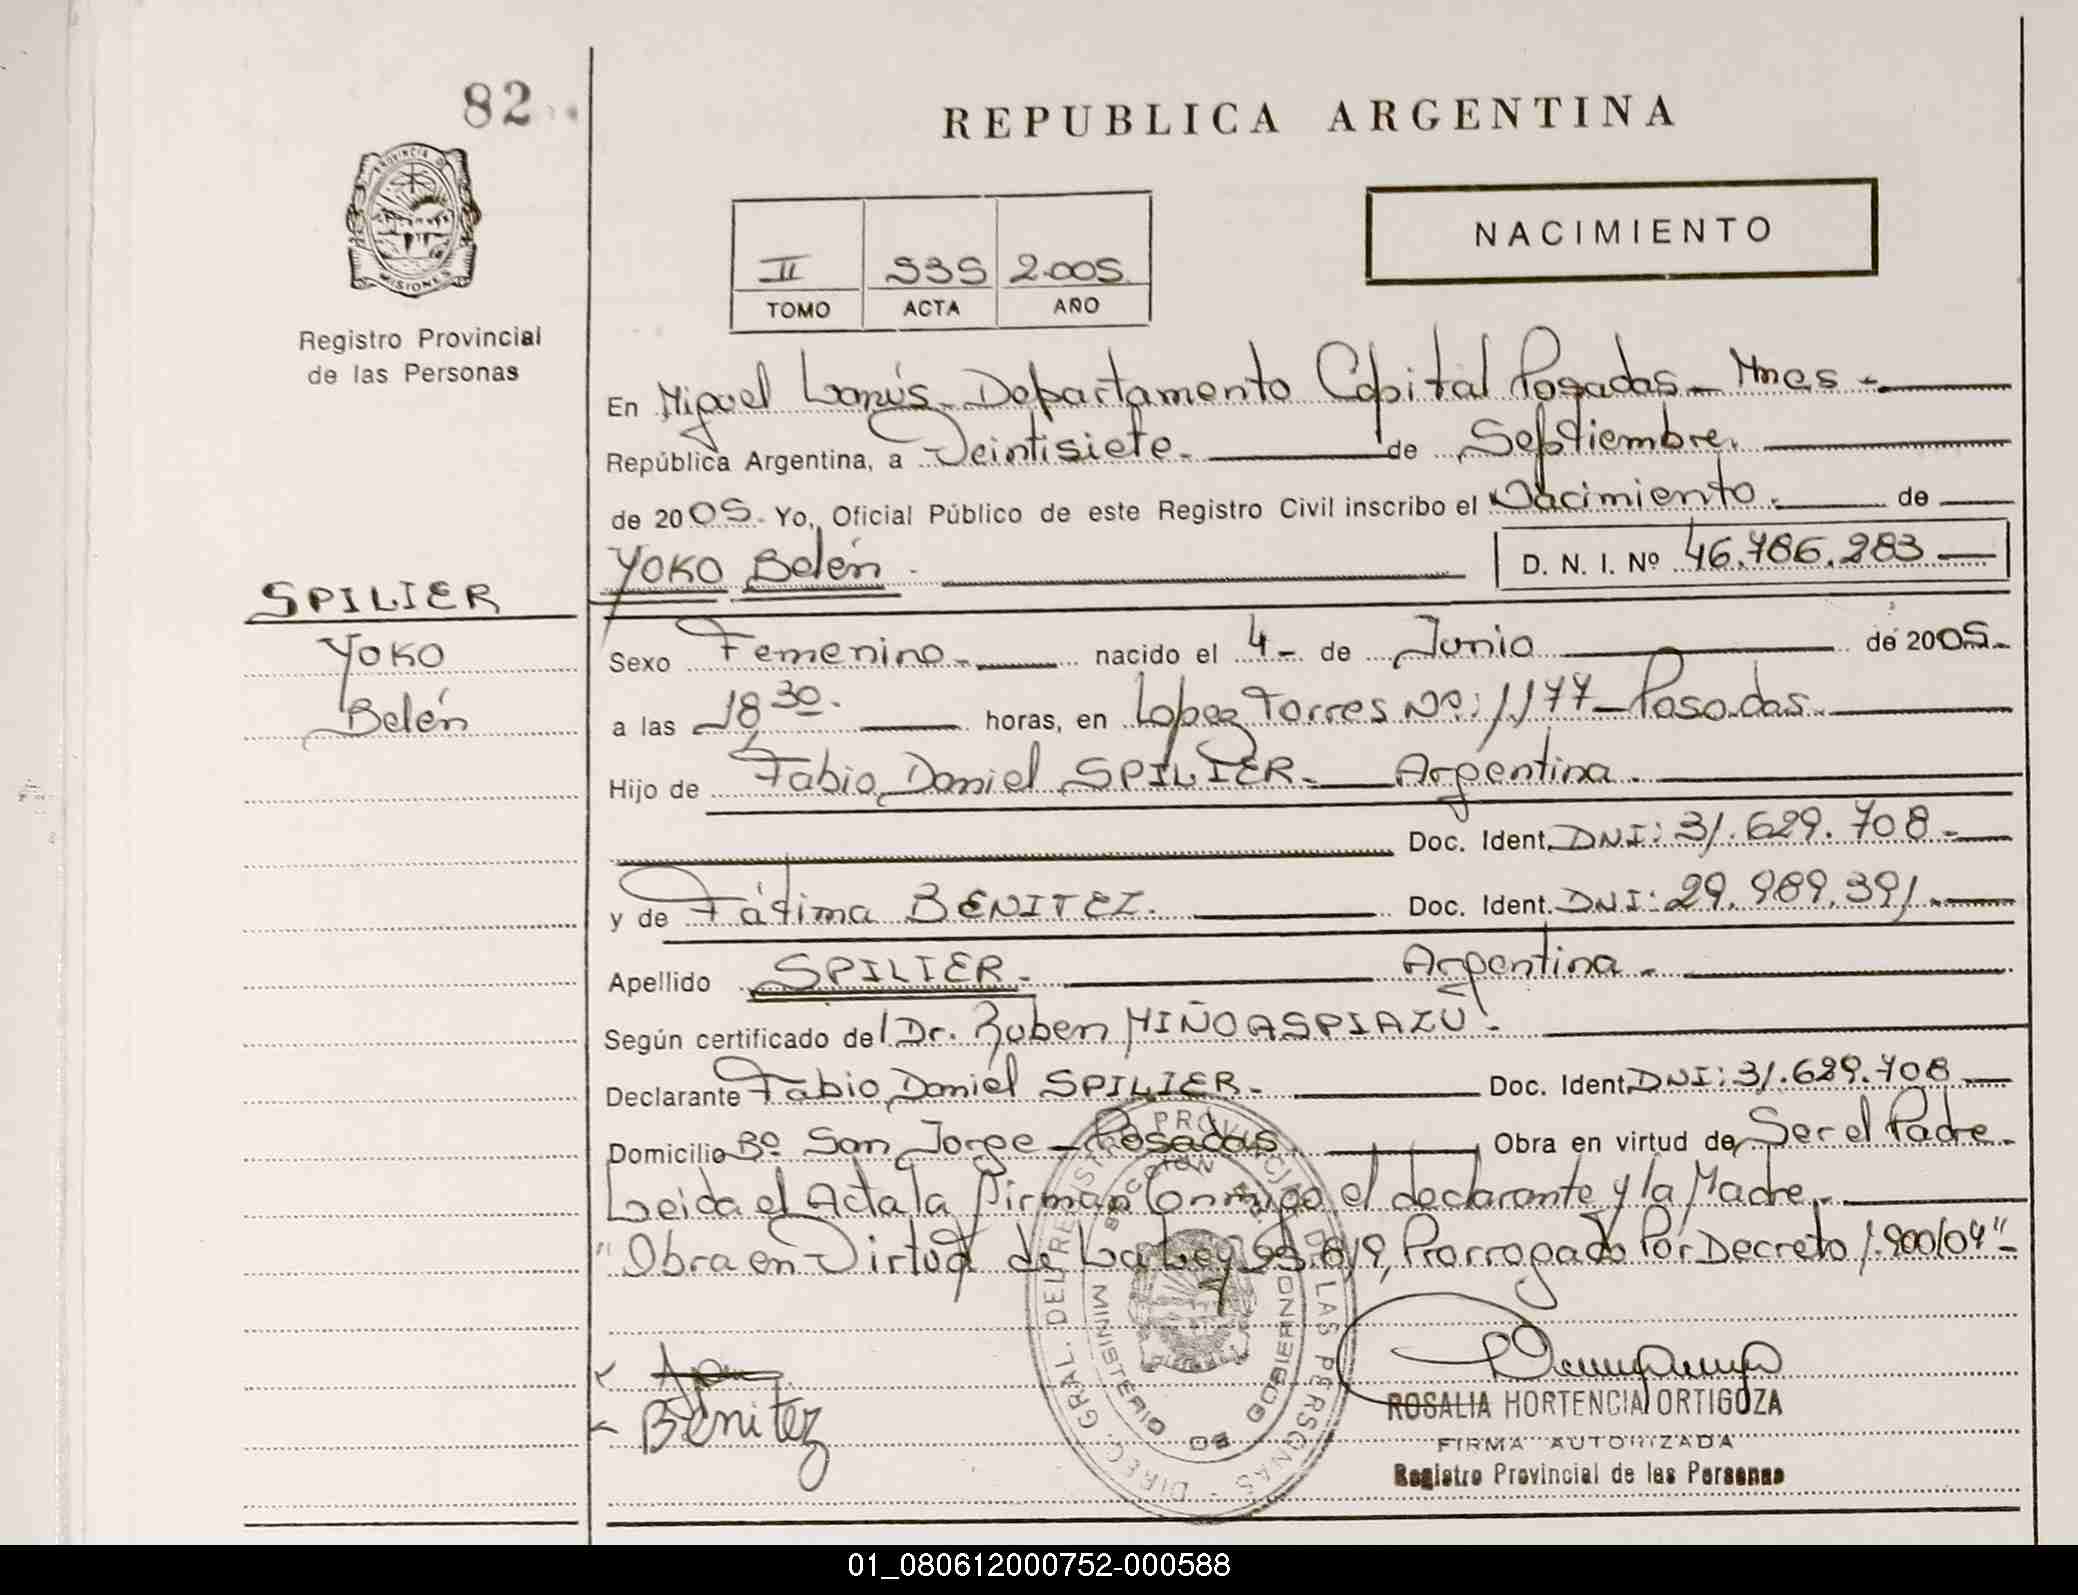 82
REPUBLICA ARGENTINA
PROVINCIA D
MISIONES
NACIMIENTO
II 535 2.005.
TOMO ACTA AÑO
Registro Provincial
de las Personas
En Miguel Lanús. Departamento Capital Posadas - Mnes -.
República Argentina, a Veintisiete. de Septiembre.
de 2005. Yo, Oficial Público de este Registro Civil inscribo el Nacimiento. de
YOKO Belén. D. N. I. Nº 46.786.283
SPILIER
YOKO
Belén
Sexo Femenino. nacido el 4- de Junio de 2005.
a las 18 30. horas, en Lopez Torres Nº: 1177 - Posadas.
Hijo de Fabio Daniel SPILIER. Argentina.
Doc. Ident. DNI: 31.629.708.
y de Fátima BENITEZ. Doc. Ident. DNI: 29.989.391.
Apellido SPILIER. Argentina.
Según certificado del Dr. Ruben MIÑOASPIAZÚ.
Declarante Fabio Daniel SPILIER. Doc. Ident. DNI: 31.629.708
Domicilio Bº San Jorge - Posadas. Obra en virtud de Ser el Padre.
Leida el Acta la firman Conmigo el declarante y la Madre.
"Obra en Virtud de La Ley 25.619, Prorrogado Por Decreto 1.900/04".
DIREC. GRAL. DEL REGISTRO PROVINCIAL DE LAS PERSONAS
MINISTERIO DE GOBIERNO
Benitez
ROSALIA HORTENCIA ORTIGOZA
FIRMA AUTORIZADA
Registro Provincial de las Personas
01_080612000752-000588